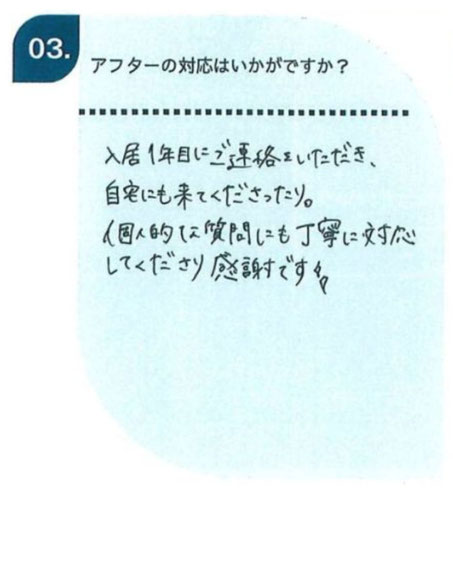 03.
アフターの対応はいかがですか？
入居1年目にご連絡をいただき、
自宅にも来てくださったり。
個人的な質問にも丁寧に対応
してくださり感謝です!!